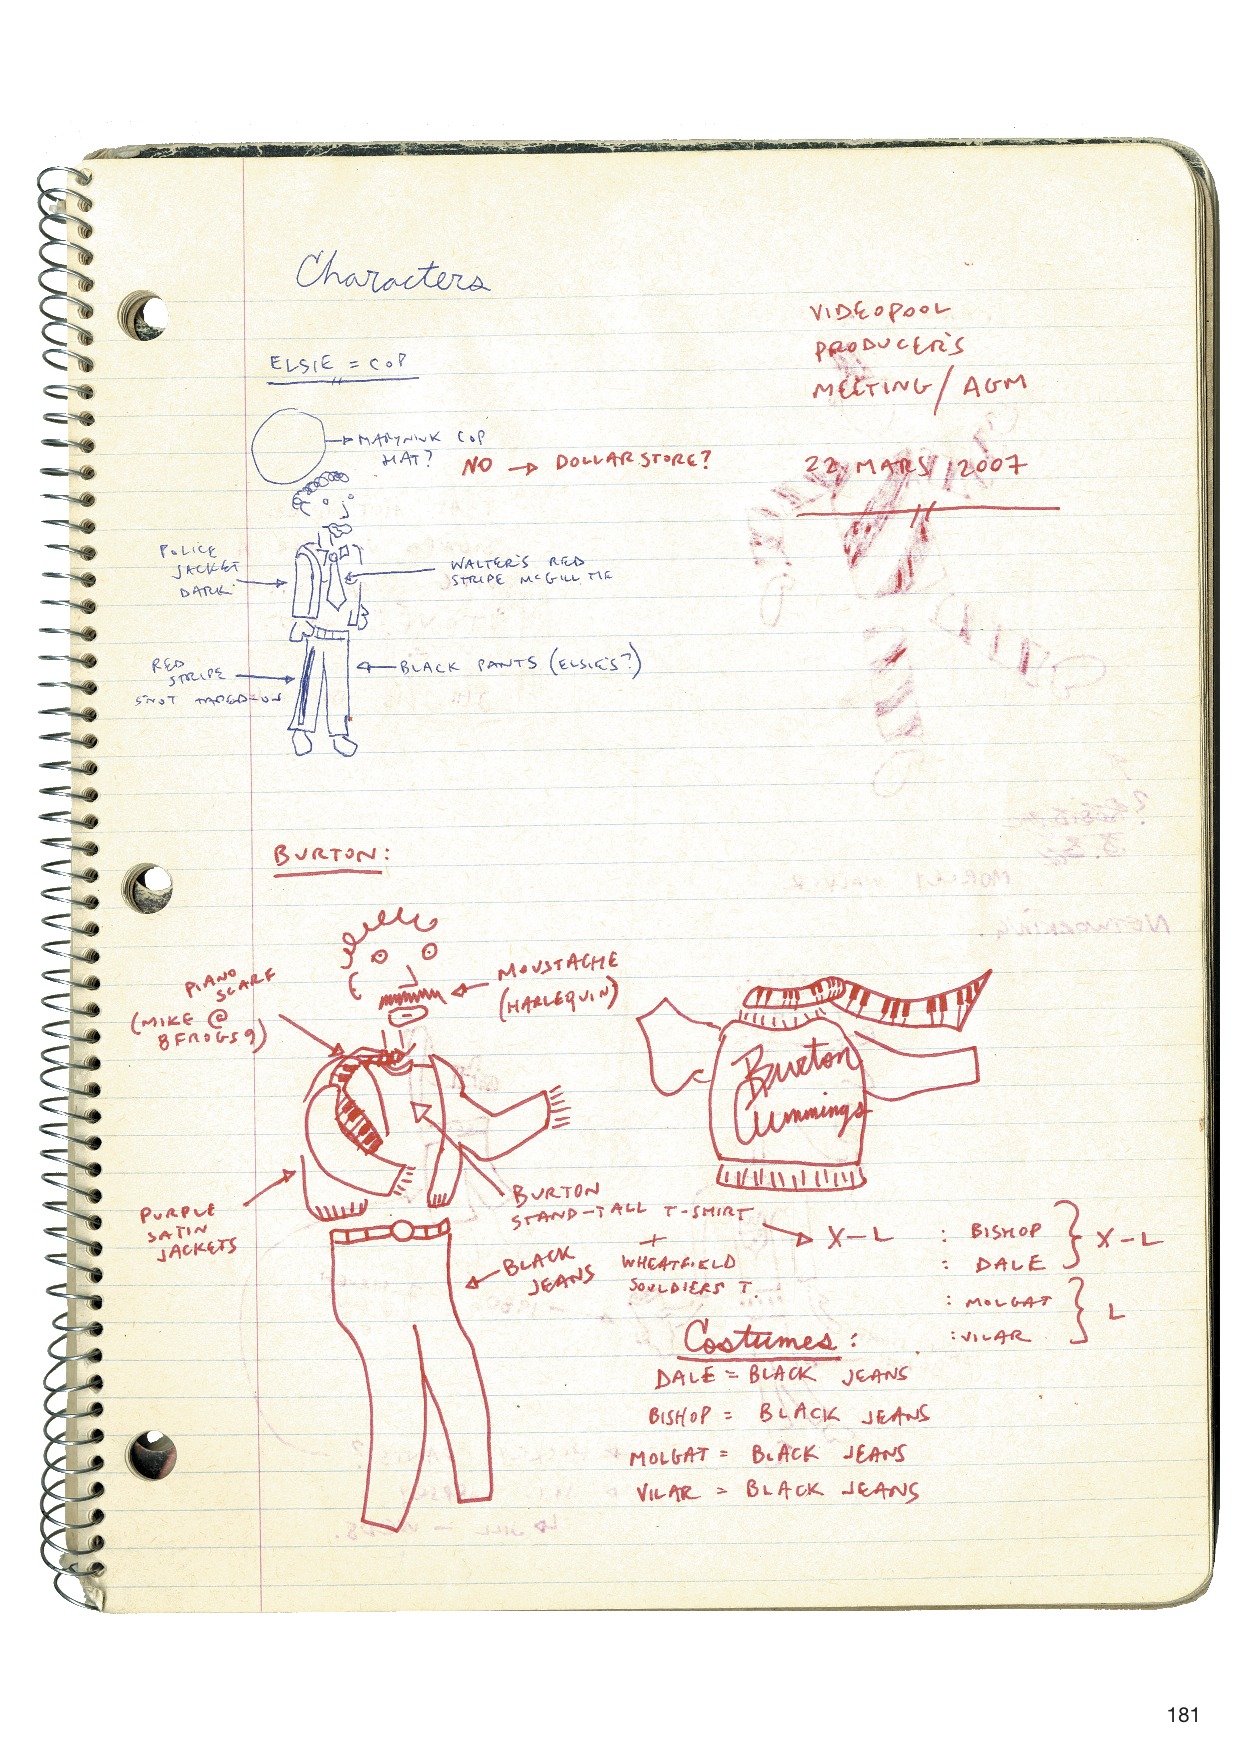 Characters
VIDEOPOOL
PRODUCER'S
MEETING/AGM
22 MARS 2007
ELSIE = COP
MARYNIUK COP
HAT? NO → DOLLARSTORE?
POLICE
JACKET
DARK
WALTER'S RED
STRIPE McGILL TIE
RED
STRIPE
BLACK PANTS (ELSIE'S?)
TAPED-ON
BURTON:
PIANO
SCARF
(MIKE @
8 FROGS?)
MOUSTACHE
(HARLEQUIN)
Burton
Cummings
PURPLE
SATIN
JACKETS
BURTON
STAND-TALL T-SHIRT → X-L
+
WHEATFIELD
SOULDIERS T.
BLACK
JEANS
: BISHOP
: DALE } X-L
: MOLGAT
: VILAR } L
Costumes:
DALE = BLACK JEANS
BISHOP = BLACK JEANS
MOLGAT = BLACK JEANS
VILAR = BLACK JEANS
181